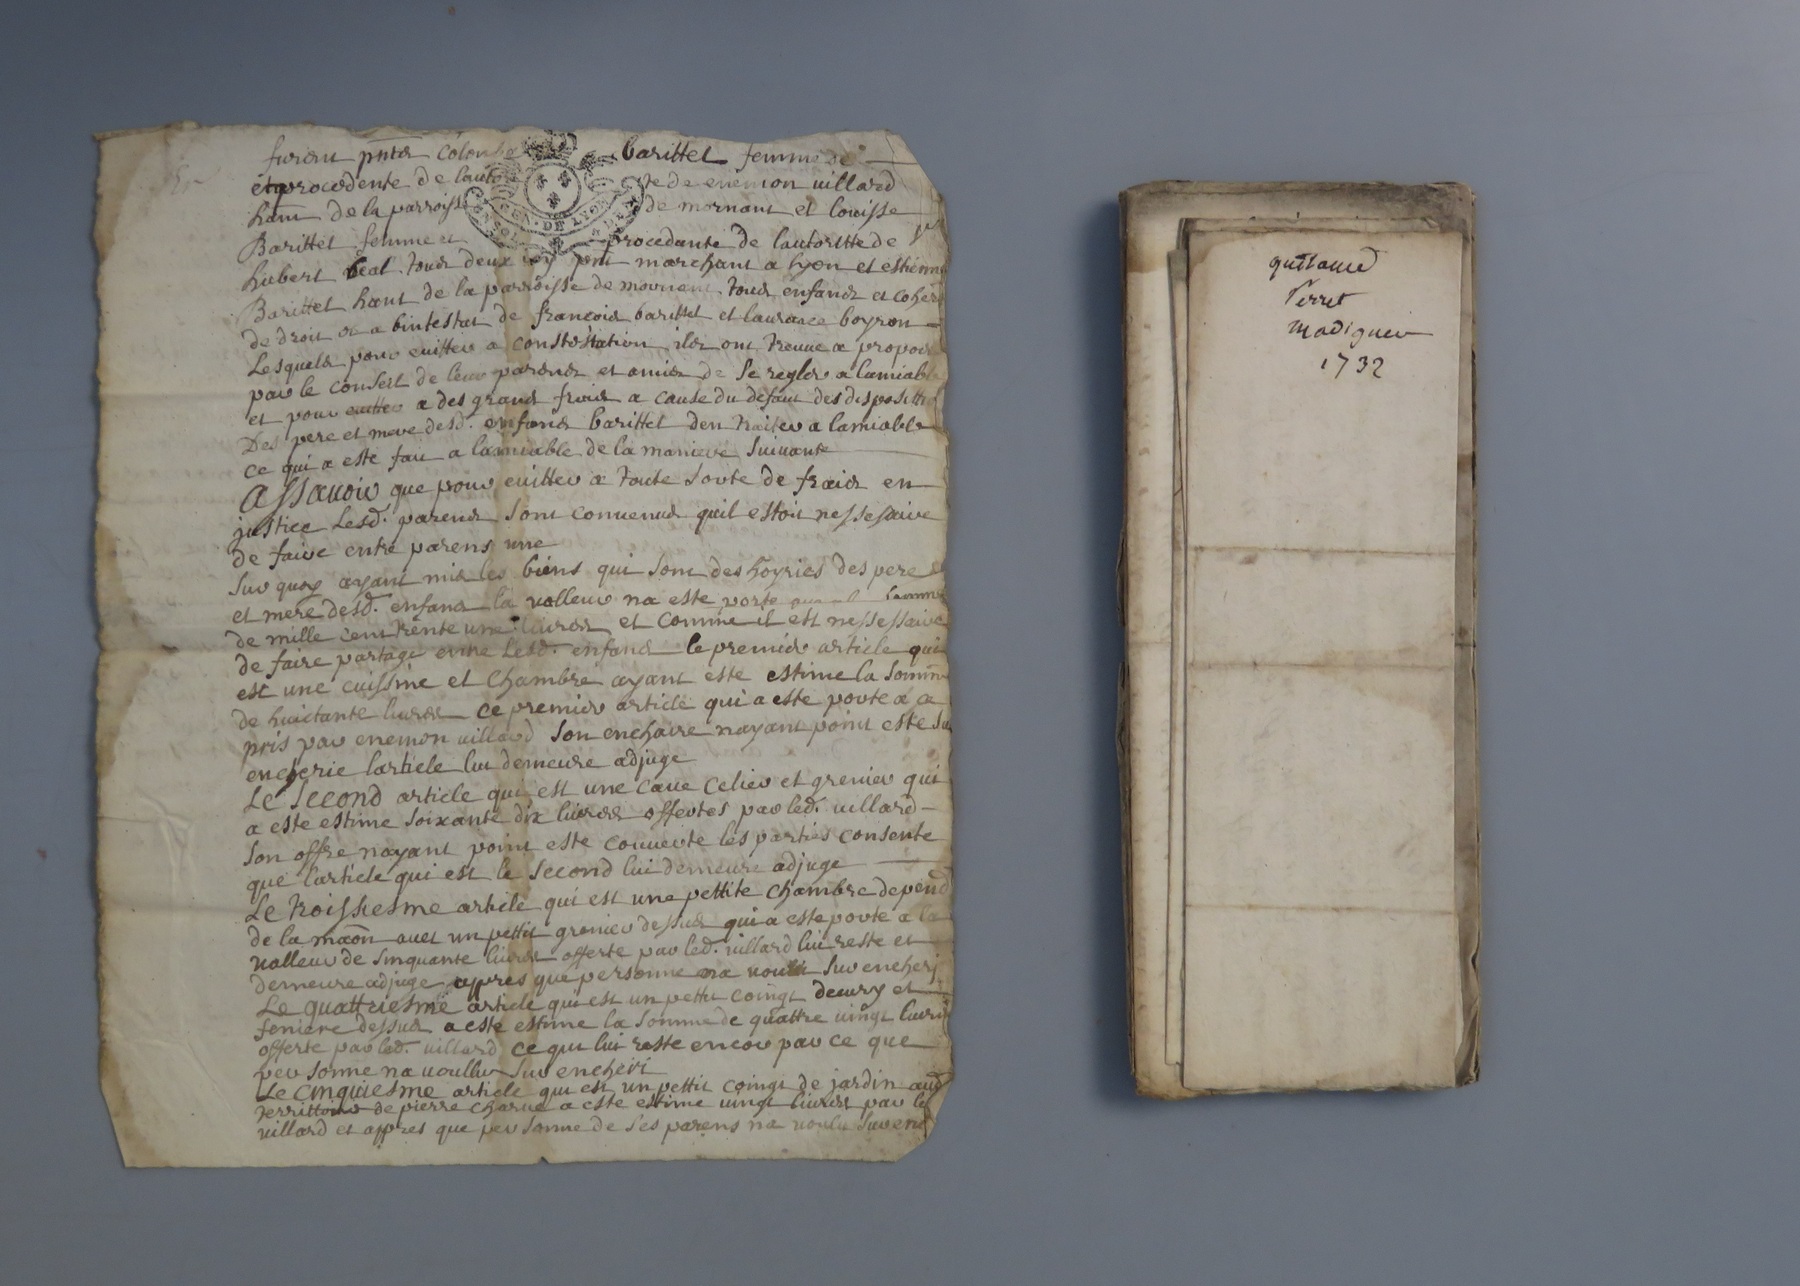 furent pnts colombe barittel femme de
et procedente de lauto te de enemon uillard
hant de la parroisse de mornant et louisse
Barittel femme et procedante de lautoritte de
hubert beal tous deux marchant a lyon et estienne
Barittel hant de la parroisse de mornant tous enfans et coher
de droit a bintestat de francois barittel et laurance boyron
Lesquels pour euitter a constestation ils ont treuue a propos
par le conseil de leur parens et amis de se regler a lamiable
et pour euitter a des grand frais a cause du defaut des disposittio
Des pere et mere desd. enfans barittel den traiter a lamiable
ce qui a este fait a lamiable de la maniere suiuante
Assauoir que pour euitter a toute sorte de frais en
justice Lesd. parens sont conuenus quil estoit nessessaire
de faire entre parens une
sur quoy ayant mis les biens qui sont des hoyries des pere
et mere desd. enfans la ualleur na este porte somme
de mille cent trente une liures et comme il est nessessaire
de faire partage entre Lesd. enfans le premier article qui
est une cuissine et chambre ayant este estime la somme
de huictante liures ce premier article qui a este porte a ce
pris par enemon uillard son enchaire nayant point este su
encherie larticle lui demeure adjuge
Le second article qui est une caue celier et grenier qui
a este estime soixante dix liures offertes par led. uillard
son offre nayant point este couuerte les parties consente
que larticle qui est le second lui demeure adjuge
Le troissiesme article qui est une pettite chambre depend
de la maon auec un pettit grenier dessus qui a este porte a la
ualleur de sinquante liures offerte par led. uillard lui reste et
demeure adjuge appres que personne na voulu sur encherj
Le quattriesme article qui est un pettit coingt decury et
feniere dessus a este estime la somme de quattre uingt liures
offerte par led. uillard ce qui lui reste encor par ce que
personne na uoullu sur encheri
Le cinquiesme article qui est un pettit coingt de jardin aud
territtoire de pierre charue a este estime uingt liures par led
uillard et appres que personne de ses parens na uoulu sur enc
GEN. DE LYON
guillaume
Perret
madignier
1732